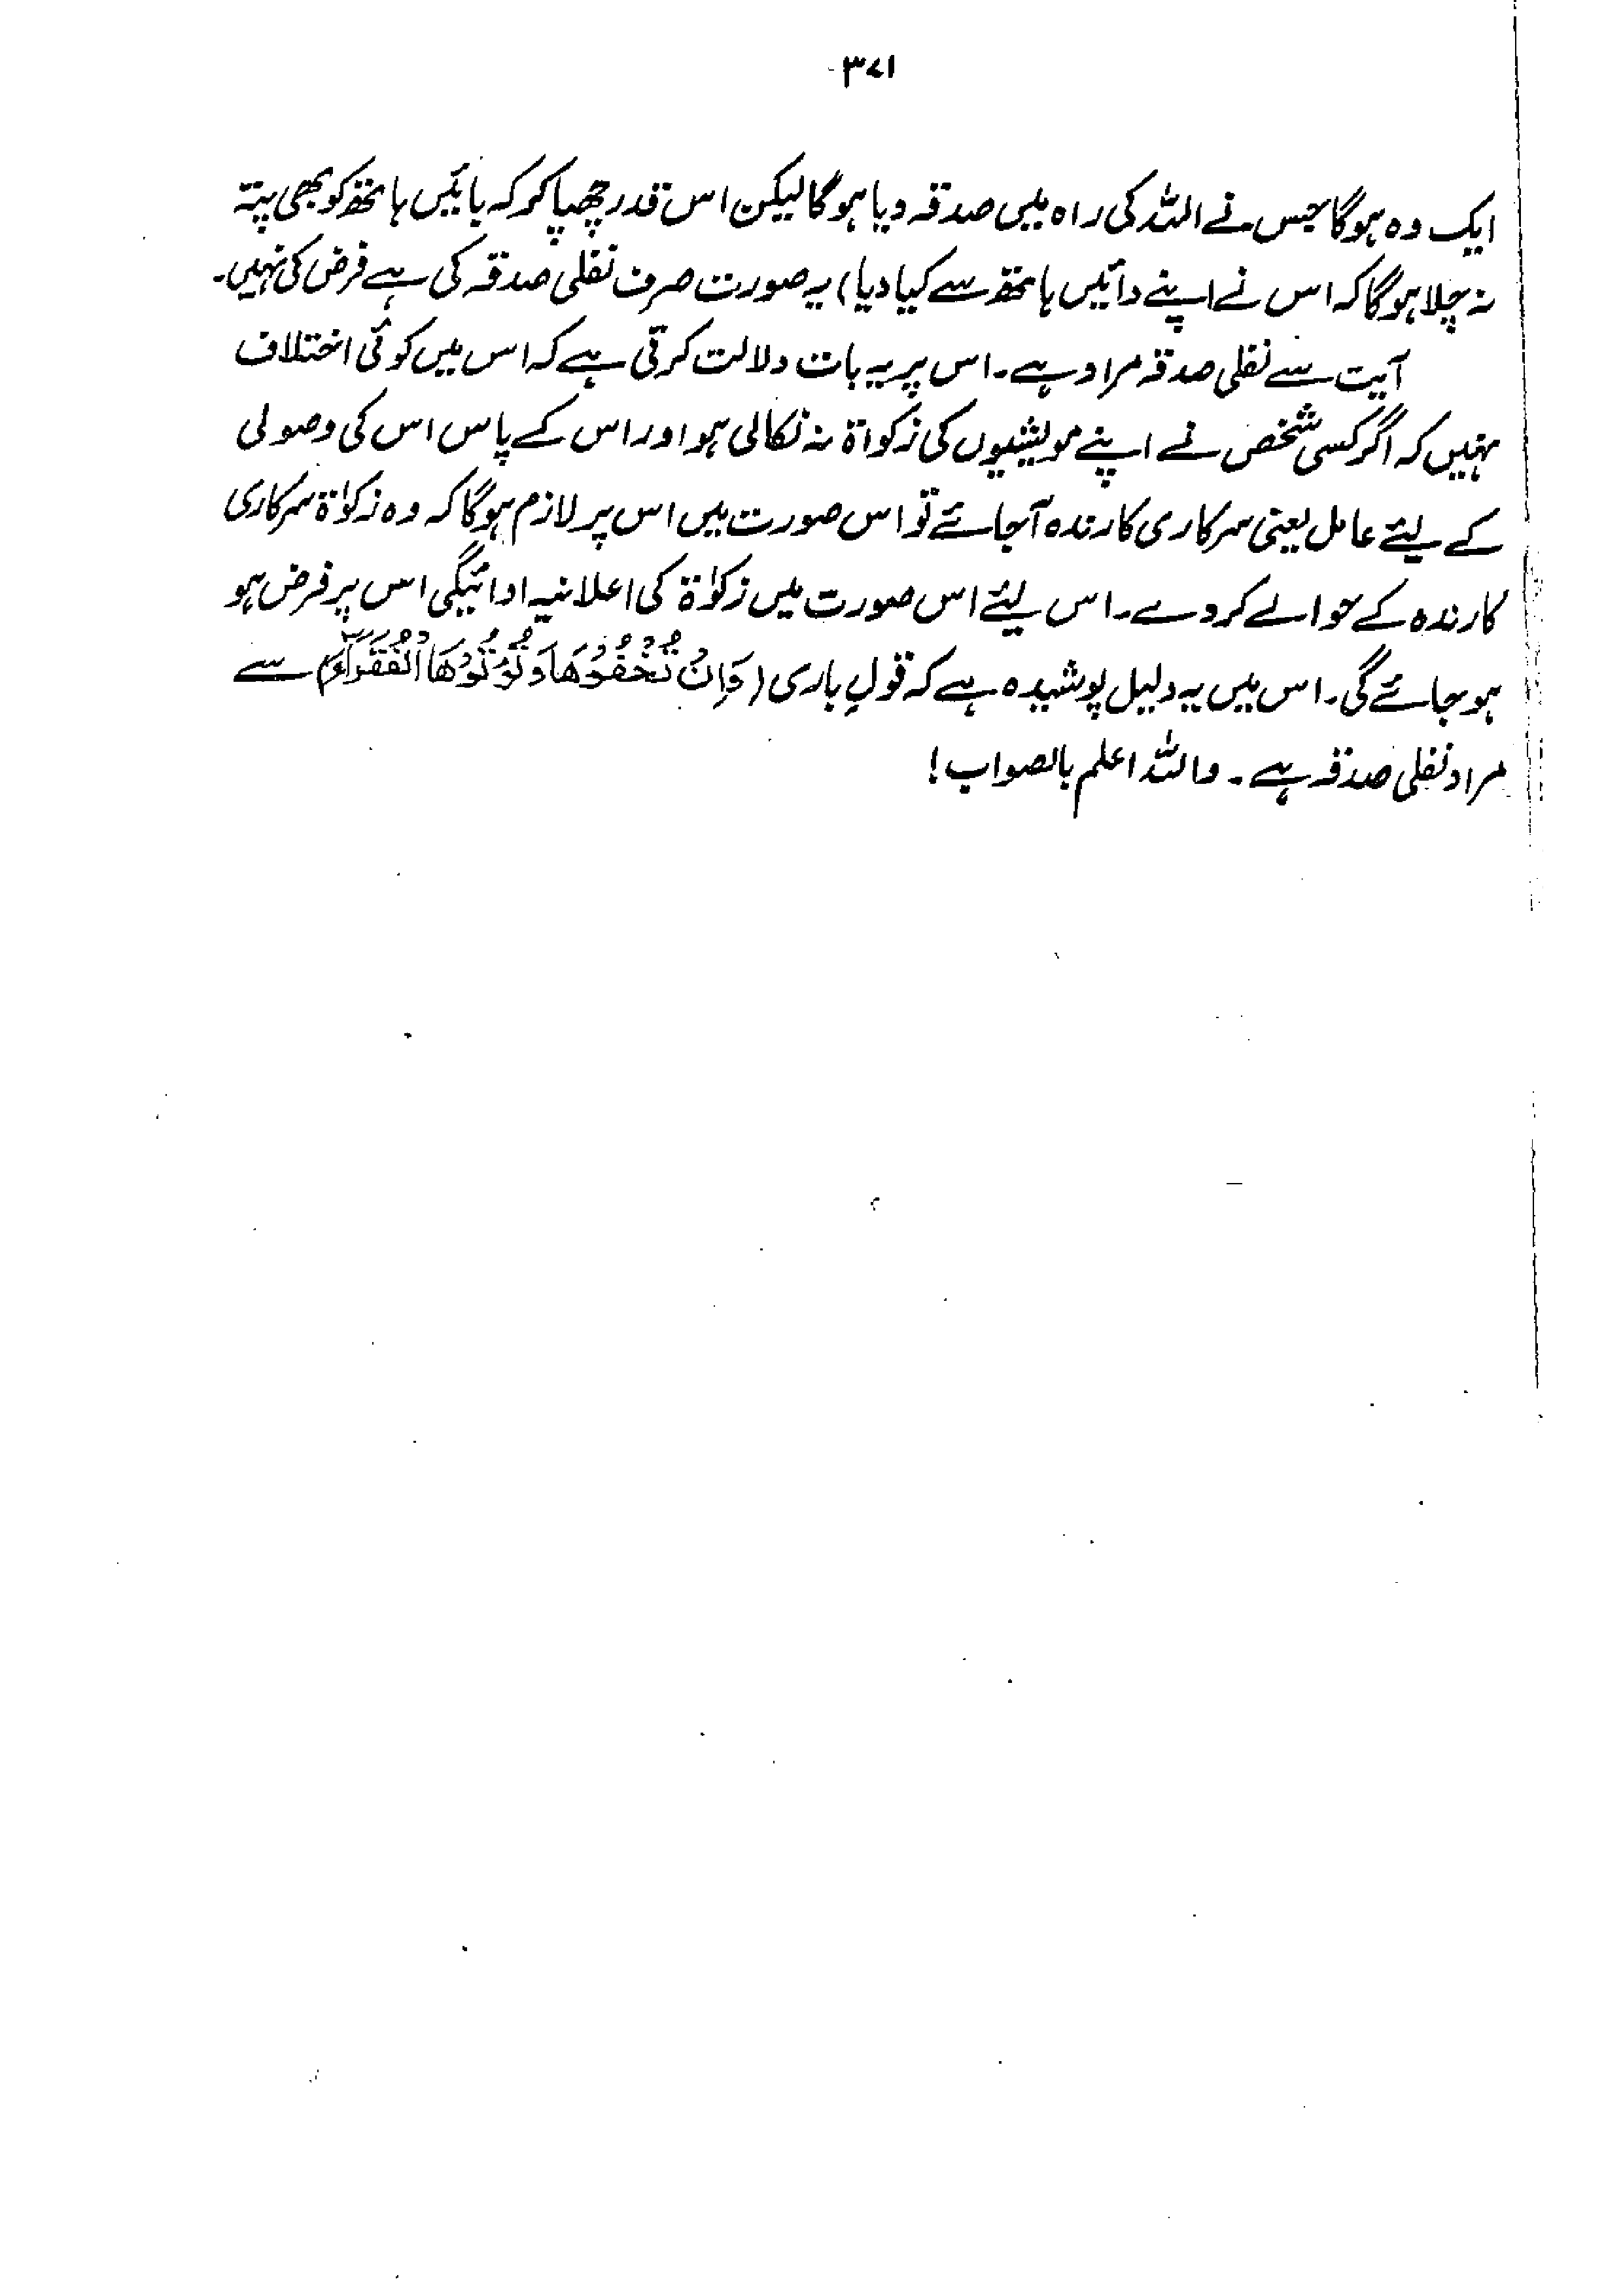 ۳۷۱
ایک وہ ہوگا جس نے اللہ کی راہ میں صدقہ دیا ہوگا لیکن اس قدر چھپا کر کہ بائیں ہاتھ کو بھی پتہ
نہ چلا ہوگا کہ اس نے اپنے دائیں ہاتھ سے کیا دیا) یہ صورت صرف نفلی صدقہ کی ہے فرض کی نہیں۔
آیت سے نفلی صدقہ مراد ہے۔ اس پر یہ بات دلالت کرتی ہے کہ اس میں کوئی اختلاف
نہیں کہ اگر کسی شخص نے اپنے مویشیوں کی زکواۃ نہ نکالی ہو اور اس کے پاس اس کی وصولی
کے لیئے عامل یعنی سرکاری کارندہ آجائے تو اس صورت میں اس پر لازم ہوگا کہ وہ زکوٰۃ سرکاری
کارندہ کے حوالے کردے۔ اس لیئے اس صورت میں زکوٰۃ کی اعلانیہ ادائیگی اس پر فرض ہو
ہو جائے گی۔ اس میں یہ دلیل پوشیدہ ہے کہ قولِ باری (وَاِنْ تُخْفُوْهَا وَتُؤْتُوْهَا الْفُقَرَآءَ) سے
مراد نفلی صدقہ ہے۔ واللہ اعلم بالصواب!